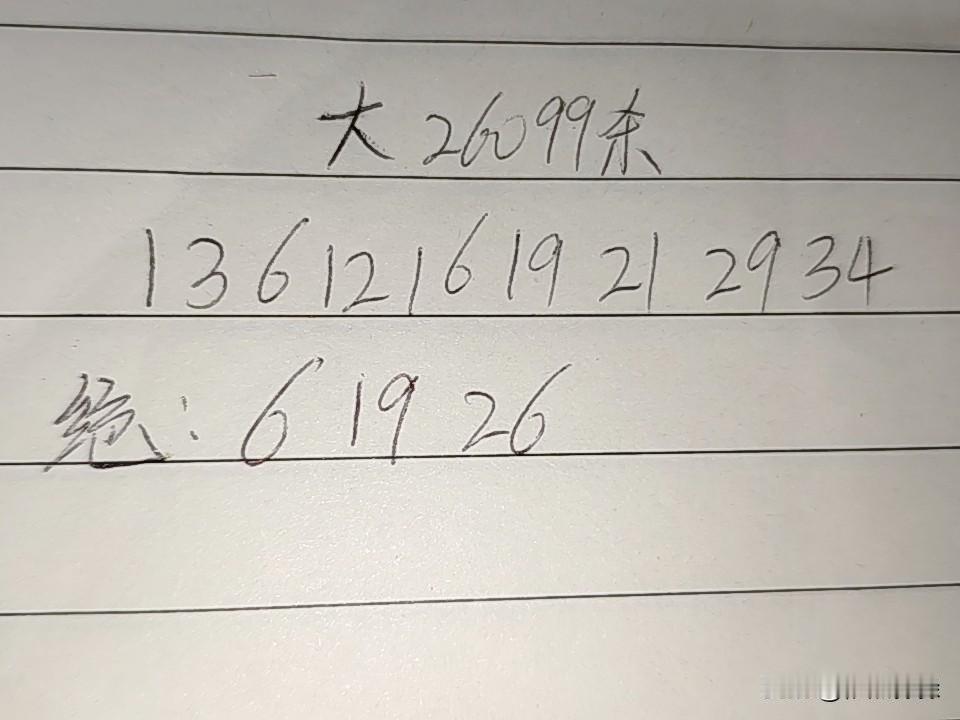 大 26099杀
1 3 6 12 16 19 21 29 34
绝: 6 19 26